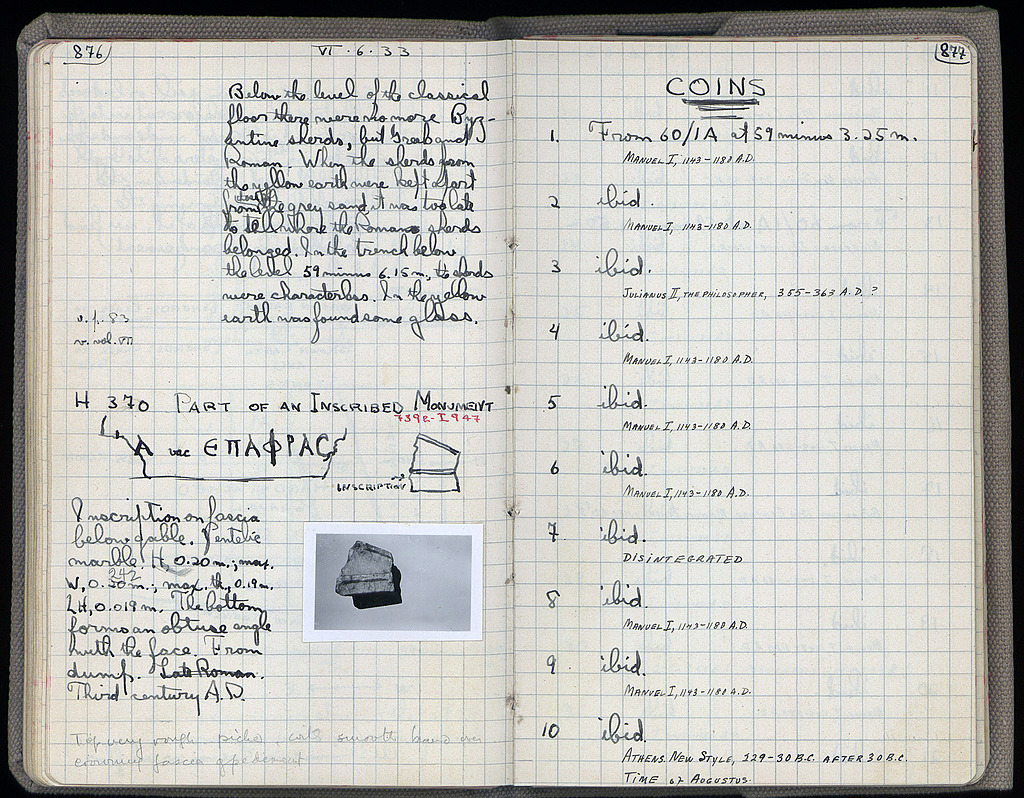 876
VI · 6 · 33
Below the level of the classical
floor there were no more Byz-
antine sherds, but Greek and
Roman. When the sherds from
the yellow earth were kept apart
from those of the grey sand, it was too late
to tell where the Roman sherds
belonged. In the trench below
the level 59 minus 6.15 m, the sherds
were characterless. In the yellow
earth was found some glass.
v. p. 83
v. vol. VII
H 370 PART OF AN INSCRIBED MONUMENT
739e - I 947
Α vac ΕΠΑΦΡΑΣ
INSCRIPTION
Inscription on fascia
below gable. Pentelic
marble. H, 0.20 m.; max.
242
W, 0.30 m.; max. th, 0.19 m.
LH, 0.019 m. The bottom
forms an obtuse angle
with the face. From
dump. Late Roman.
Third century A.D.
Top very rough picked, with smooth band over
crowning fascia of pediment
877
COINS
1. From 60/ΙΑ at 59 minus 3.25 m.
MANUEL I, 1143-1180 A.D.
2 ibid.
MANUEL I, 1143-1180 A.D.
3 ibid.
JULIANUS II, THE PHILOSOPHER, 355-363 A.D. ?
4 ibid.
MANUEL I, 1143-1180 A.D.
5 ibid.
MANUEL I, 1143-1180 A.D.
6 ibid.
MANUEL I, 1143-1180 A.D.
7. ibid.
DISINTEGRATED
8 ibid.
MANUEL I, 1143-1180 A.D.
9. ibid.
MANUEL I, 1143-1180 A.D.
10 ibid.
ATHENS. NEW STYLE, 229-30 B.C. AFTER 30 B.C.
TIME OF AUGUSTUS.